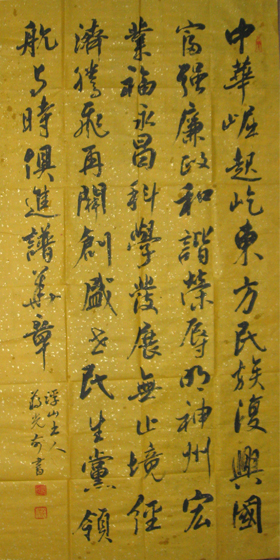 中華崛起屹東方民族復興國
富强廉政和諧榮辱明神州宏
業福永昌科學發展無止境經
濟騰飛再開創盛世民生黨領
航與時俱進譜華章
浮山土人
光奇書